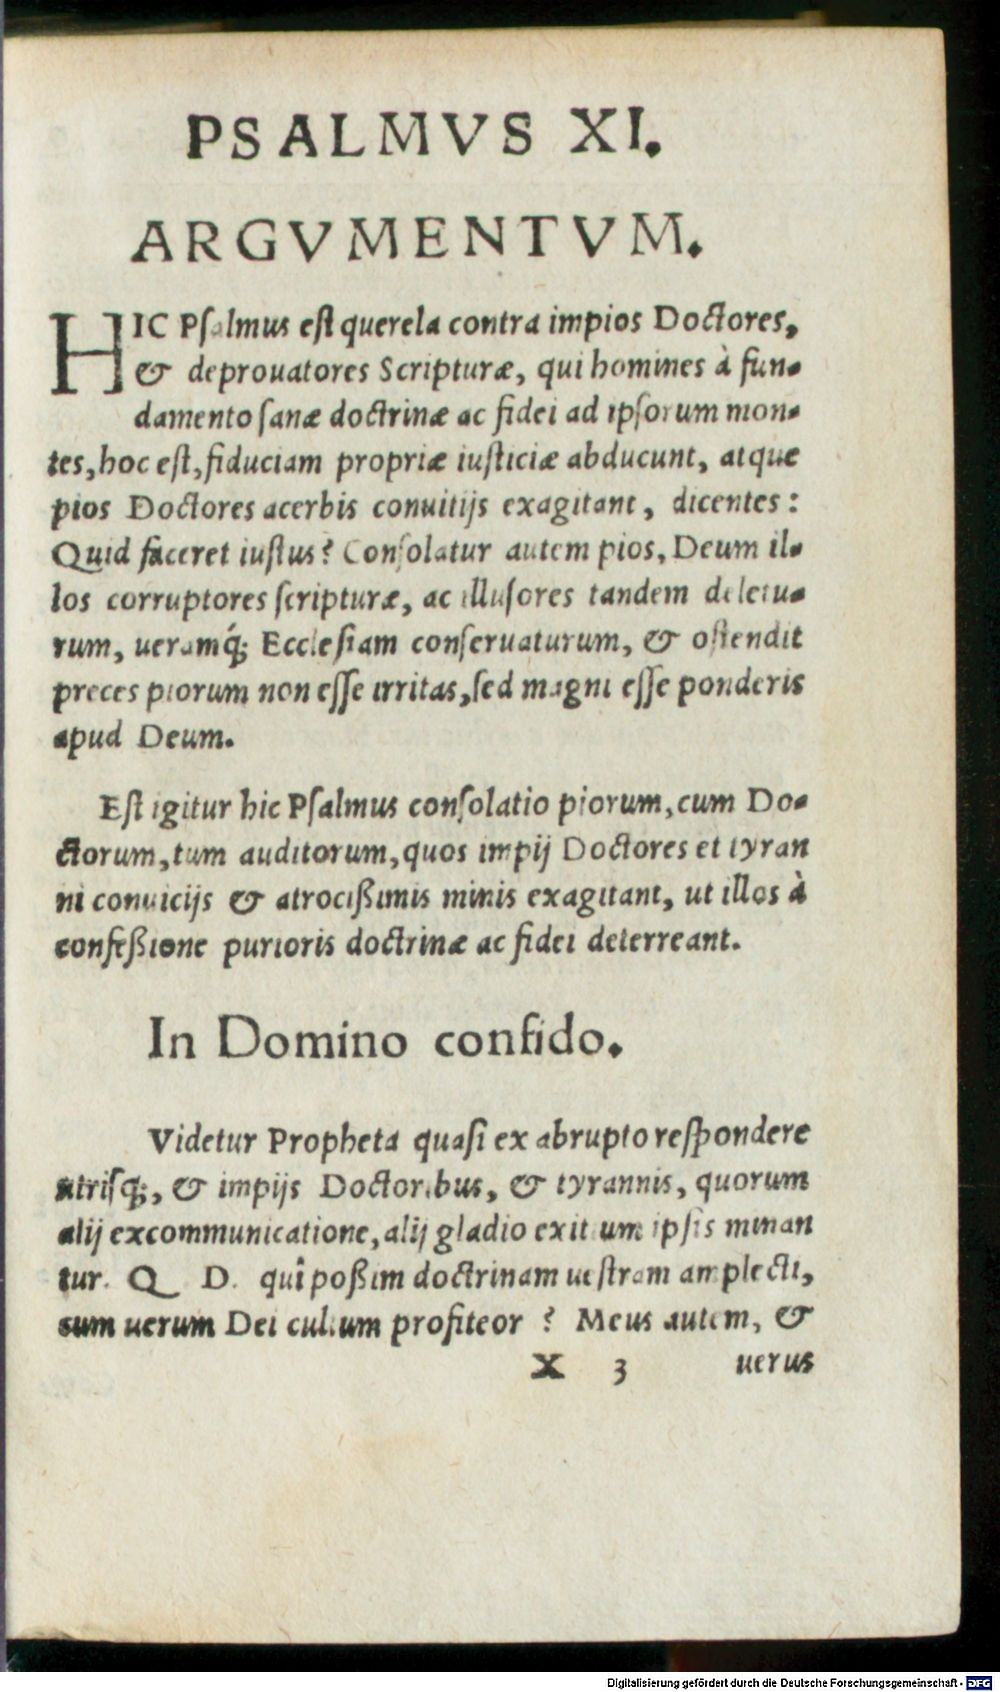 PSALMVS XI.
ARGVMENTVM.
HIC Psalmus est querela contra impios Doctores,
& deprouatores Scripturæ, qui homines à fun-
damento sanæ doctrinæ ac fidei ad ipsorum mon-
tes, hoc est, fiduciam propriæ iusticiæ abducunt, atque
pios Doctores acerbis conuitijs exagitant, dicentes:
Quid faceret iustus? Consolatur autem pios, Deum il-
los corruptores scripturæ, ac illusores tandem deletu-
rum, ueramq́; Ecclesiam conseruaturum, & ostendit
preces piorum non esse irritas, sed magni esse ponderis
apud Deum.
Est igitur hic Psalmus consolatio piorum, cum Do-
ctorum, tum auditorum, quos impij Doctores et tyran
ni conuicijs & atrocißimis minis exagitant, ut illos à
confeßione purioris doctrinæ ac fidei deterreant.
In Domino confido.
Videtur Propheta quasi ex abrupto respondere
utrisq;, & impijs Doctoribus, & tyrannis, quorum
alij excommunicatione, alij gladio exitium ipsis minan
tur. Q. D. quî poßim doctrinam uestram amplecti,
cum uerum Dei cultum profiteor? Meus autem, &
X 3 uerus
Digitalisierung gefördert durch die Deutsche Forschungsgemeinschaft - DFG